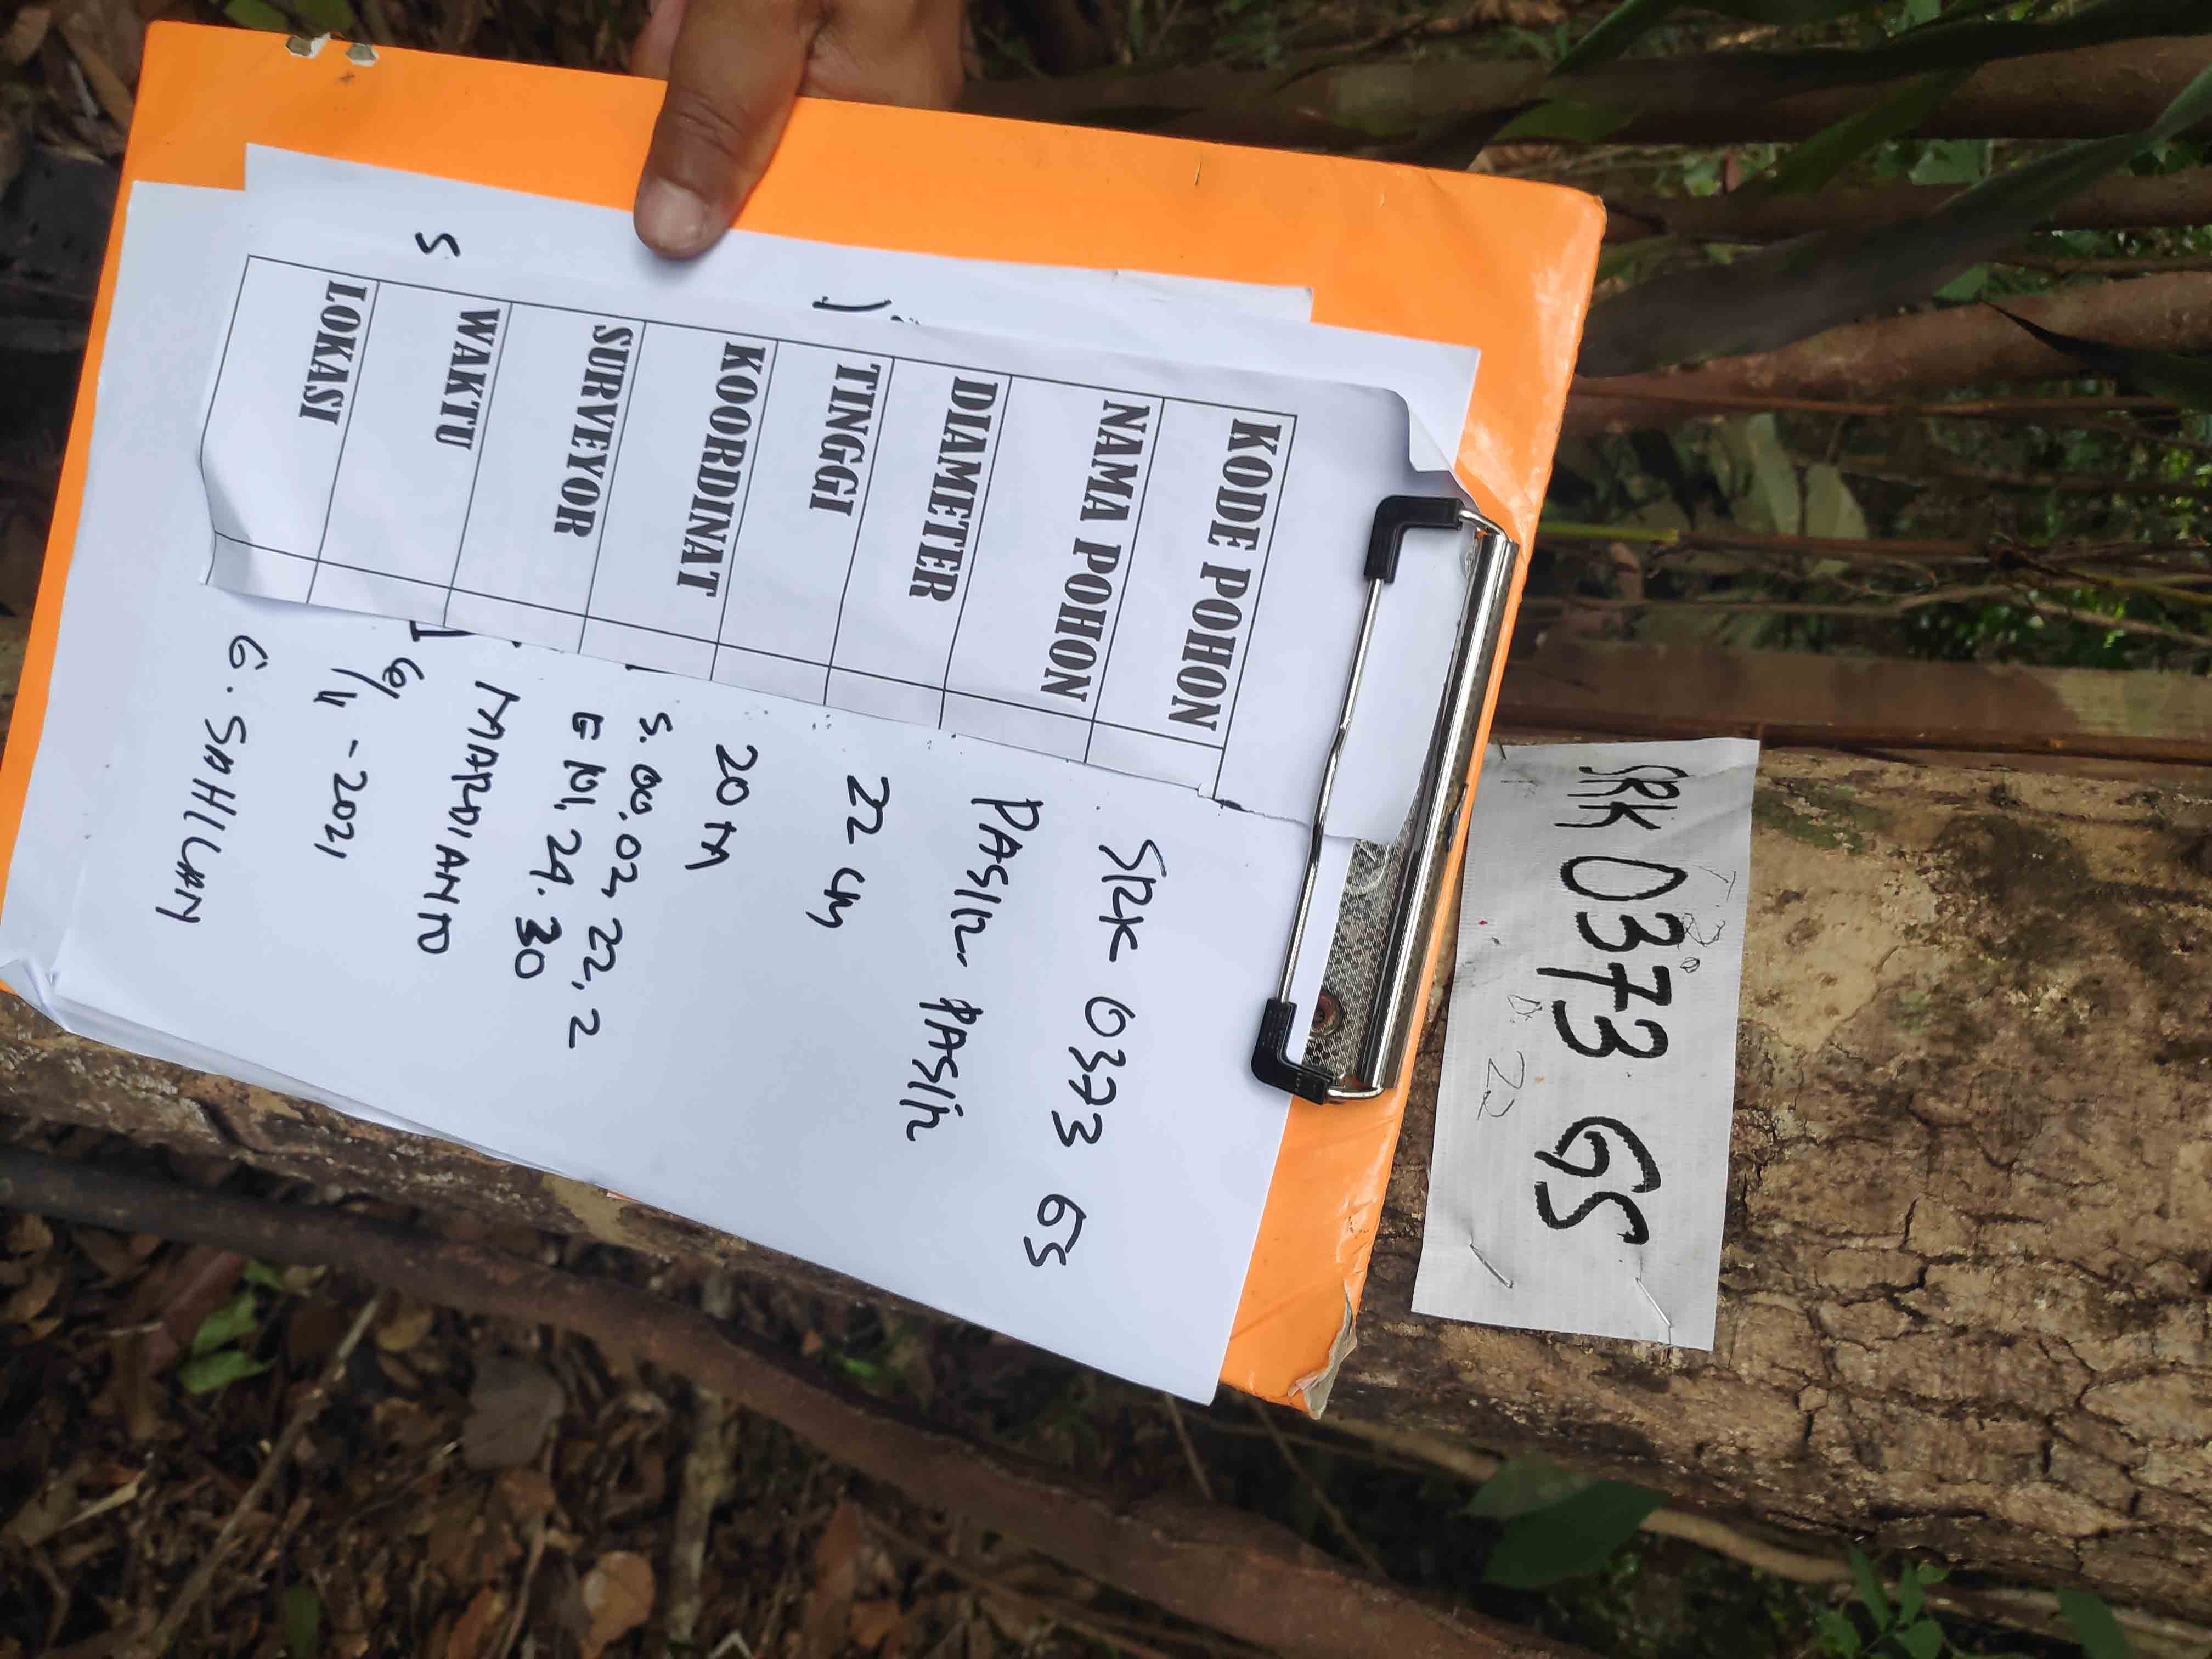 KODE POHON SRK 0373 GS
NAMA POHON PASIR PASIR
DIAMETER 22 cm
TINGGI 20 M
KOORDINAT S. 00. 02. 22. 2
E 101. 24. 30
SURVEYOR MARDIANTO
WAKTU 16/11 - 2021
LOKASI G. SAHILAN
S
SRK 0373 GS
T 20
D. 22